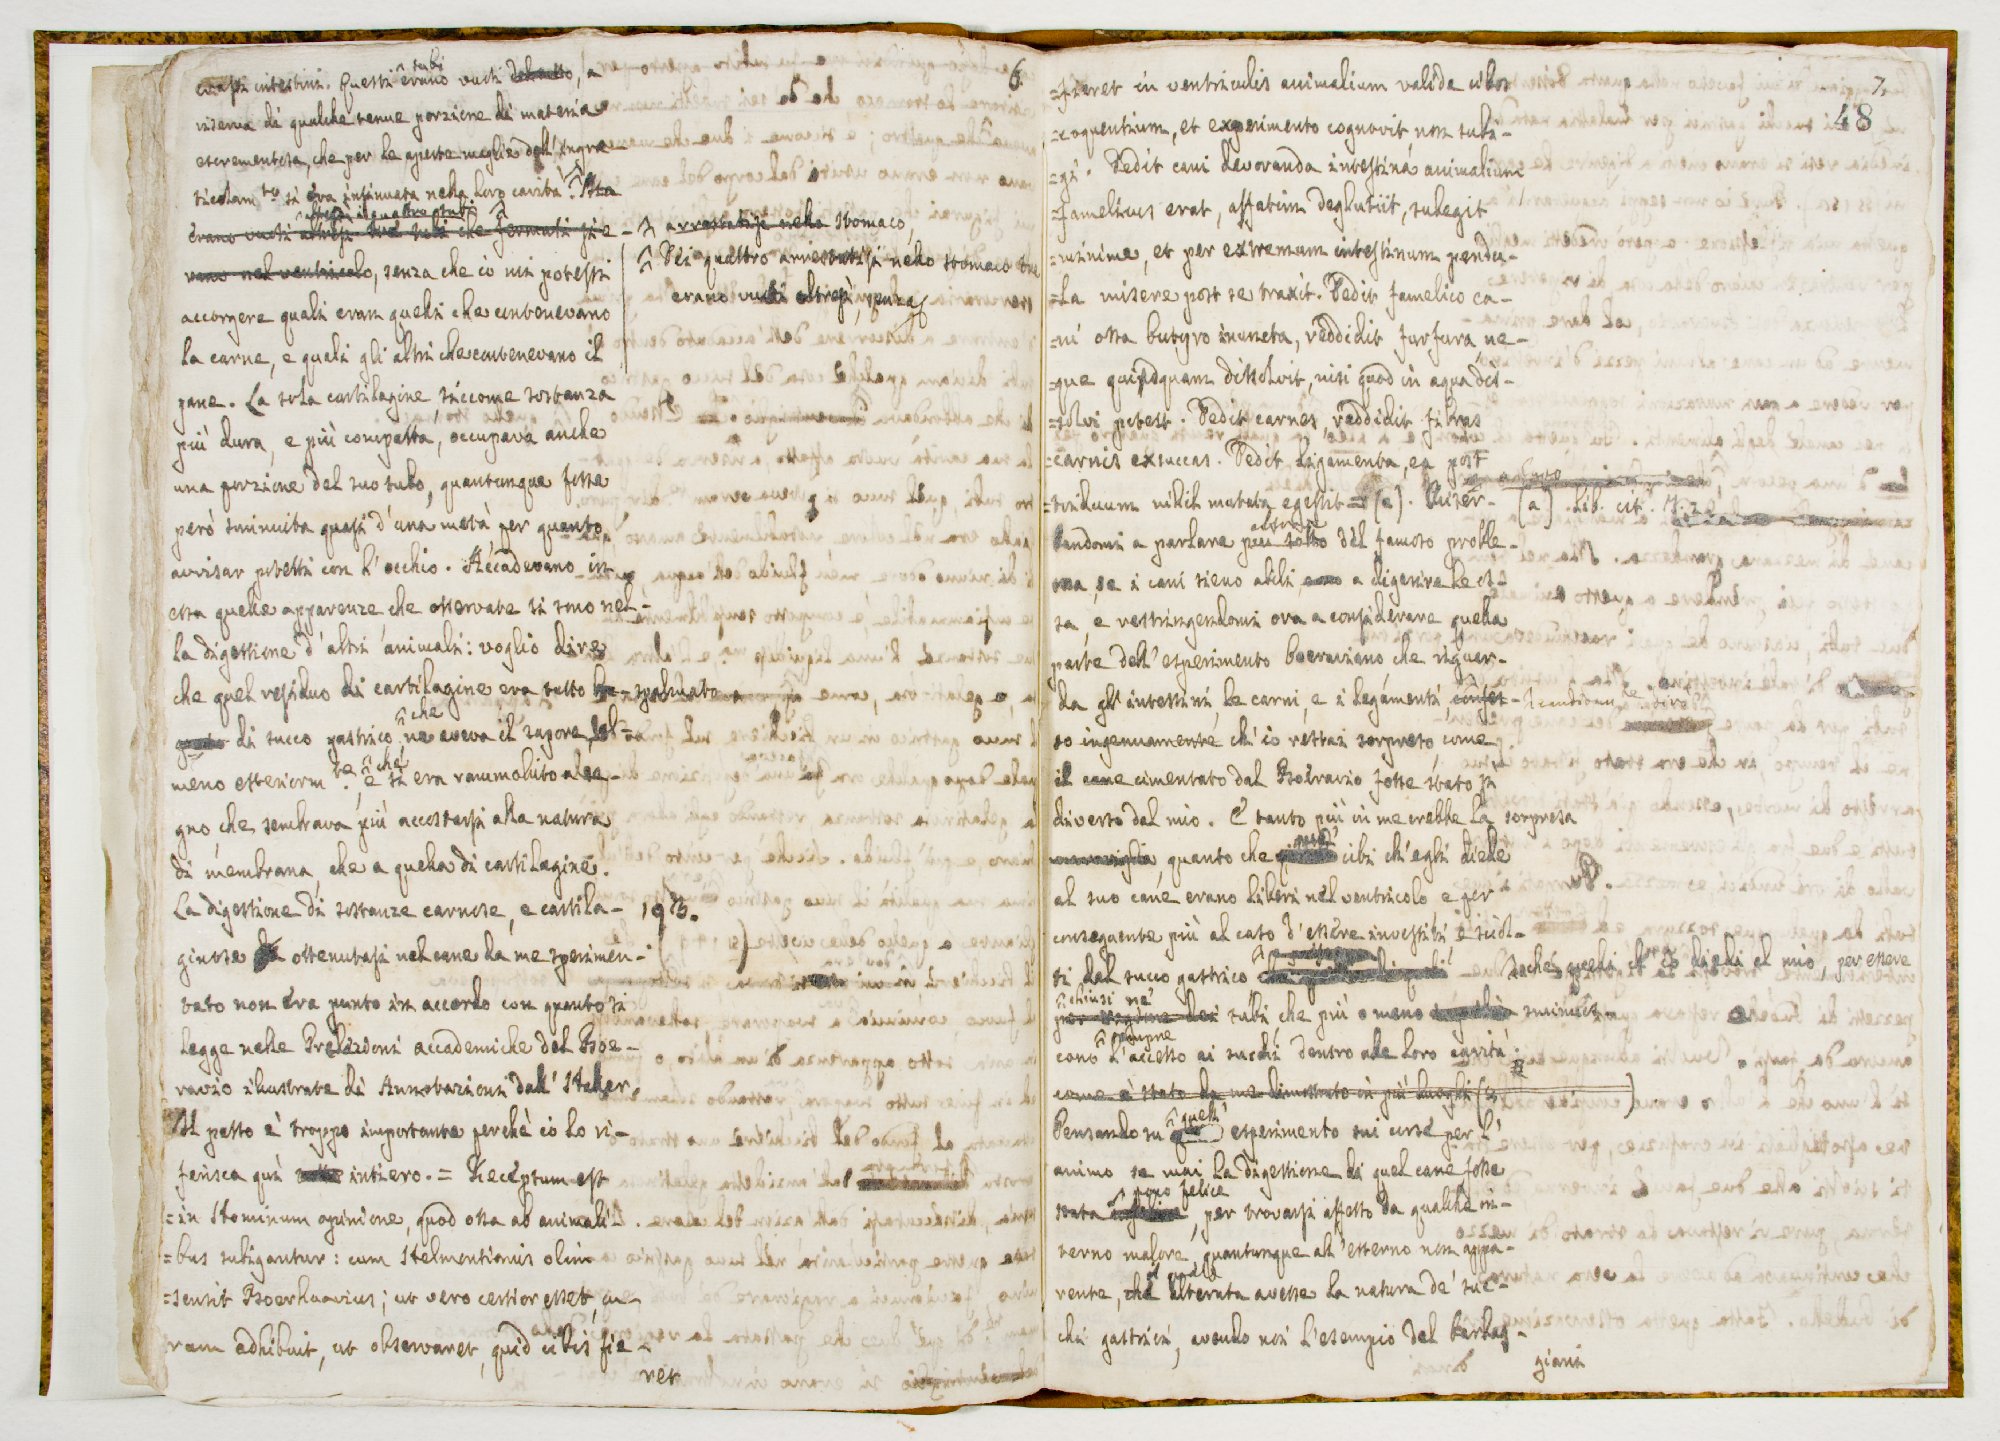 6.
crassi intestini. Questi tubi erano vuoti del tutto, a
riserva di qualche tenue porzione di materia
escrementosa, che per le aperte maglie dell' ingra-
ticolam.to si era insinuata nella loro cavità. Ma
altresì i quattro tubi
erano vuoti altresì tre tubi che fermati si e-
rano nel ventricolo, senza che io mi potessi
arrestatisi nello stomaco,
Dei quattro arrestatisi nello stomaco tre
erano vuoti altresì, senza
accorgere quali eran quelli che contenevano
la carne, e quali gli altri che contenevano il
pane. La sola cartilagine, siccome sostanza
più dura, e più compatta, occupava anche
una porzione del suo tubo, quantunque fosse
però sminuita quasi d'una metà, per quanto
avvisar potessi con l'occhio. Accadevano in
essa quelle apparenze, che osservate si sono nel-
la digestione d'altri animali: voglio dire
che quel residuo di cartilagine era tutto spalmato
di succo gastrico, che ne aveva il sapore, al-
meno esteriorm.te, e che si era rammollito a se-
gno, che sembrava più accostarsi alla natura
di membrana, che a quella di cartilagine.
193.
La digestione di sostanze carnose, e cartila-
ginose ottenutasi nel cane da me sperimen-
tato non era punto in accordo con quanto si
legge nelle Prelezioni accademiche del Boe-
ravio illustrate di Annotazioni dall' Haller.
Il passo è troppo importante perchè io lo ri-
ferisca qui intiero. = Receptum est
= in Hominum opinione, quod ossa ab animali-
= bus subigantur: cum Helmontianis olim
= sensit Boerhaavius; ut vero certior esset, cu-
ram adhibuit, ut observaret, quid cibis fie-
ret
7.
48
= fieret in ventriculis animalium valide cibos
= coquentium, et experimento cognovit non subi-
= gi. Dedit cani devoranda intestina animalium
= famelicus erat, affatim deglutiit, subegit
= minime, et per extremum intestinum pendu-
= la misere post se traxit. Dedit famelico ca-
= ni ossa butyro inuncta, reddidit furfura ne-
= que quidquam dissolvit, nisi quod in aqua dis-
= solvi potest. Dedit carnes, reddidit fibras
= carnis exsuccas. Dedit ligamenta, ea post
= triduum nihil mutata egessit = (a). Riser-
(a). Lib. cit. T. 2.
bandomi a parlare più sotto del famoso proble-
ma, se i cani sieno abili a digerire le os-
sa, e restringendomi ora a considerare quella
parte dell' esperimento Boeraviano che riguar-
da gl' intestini, le carni, e i legamenti, confes-
so ingenuamente ch' io restai sorpreso, come
il cane cimentato dal Boeravio fosse stato sì
diverso dal mio. E tanto più in me crebbe la sorpresa
maraviglia, quanto che cibi ch' egli diede
al suo cane erano liberi nel ventricolo e per
conseguente più al caso d'essere investiti e sciol-
ti dal succo gastrico
dochè quelli che io diedi al mio, per essere
chiusi ne'
tubi che più o meno sminuis-
cono sempre l'accesso ai succhi dentro alle loro cavità.
come è stato da me dimostrato in più luoghi
Pensando su quest' esperimento mi corse per l'
animo se mai la digestione di quel cane fosse
stata poco felice, per trovarsi affetto da qualche in-
terno malore, quantunque all' esterno non appa-
rente, che alterata avesse la natura de' suc-
chi gastrici, avendo noi l'esempio del barbag-
giani